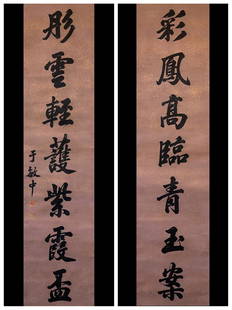 彩鳳高臨青玉案
彤雲輕護紫霞盃
于敏中